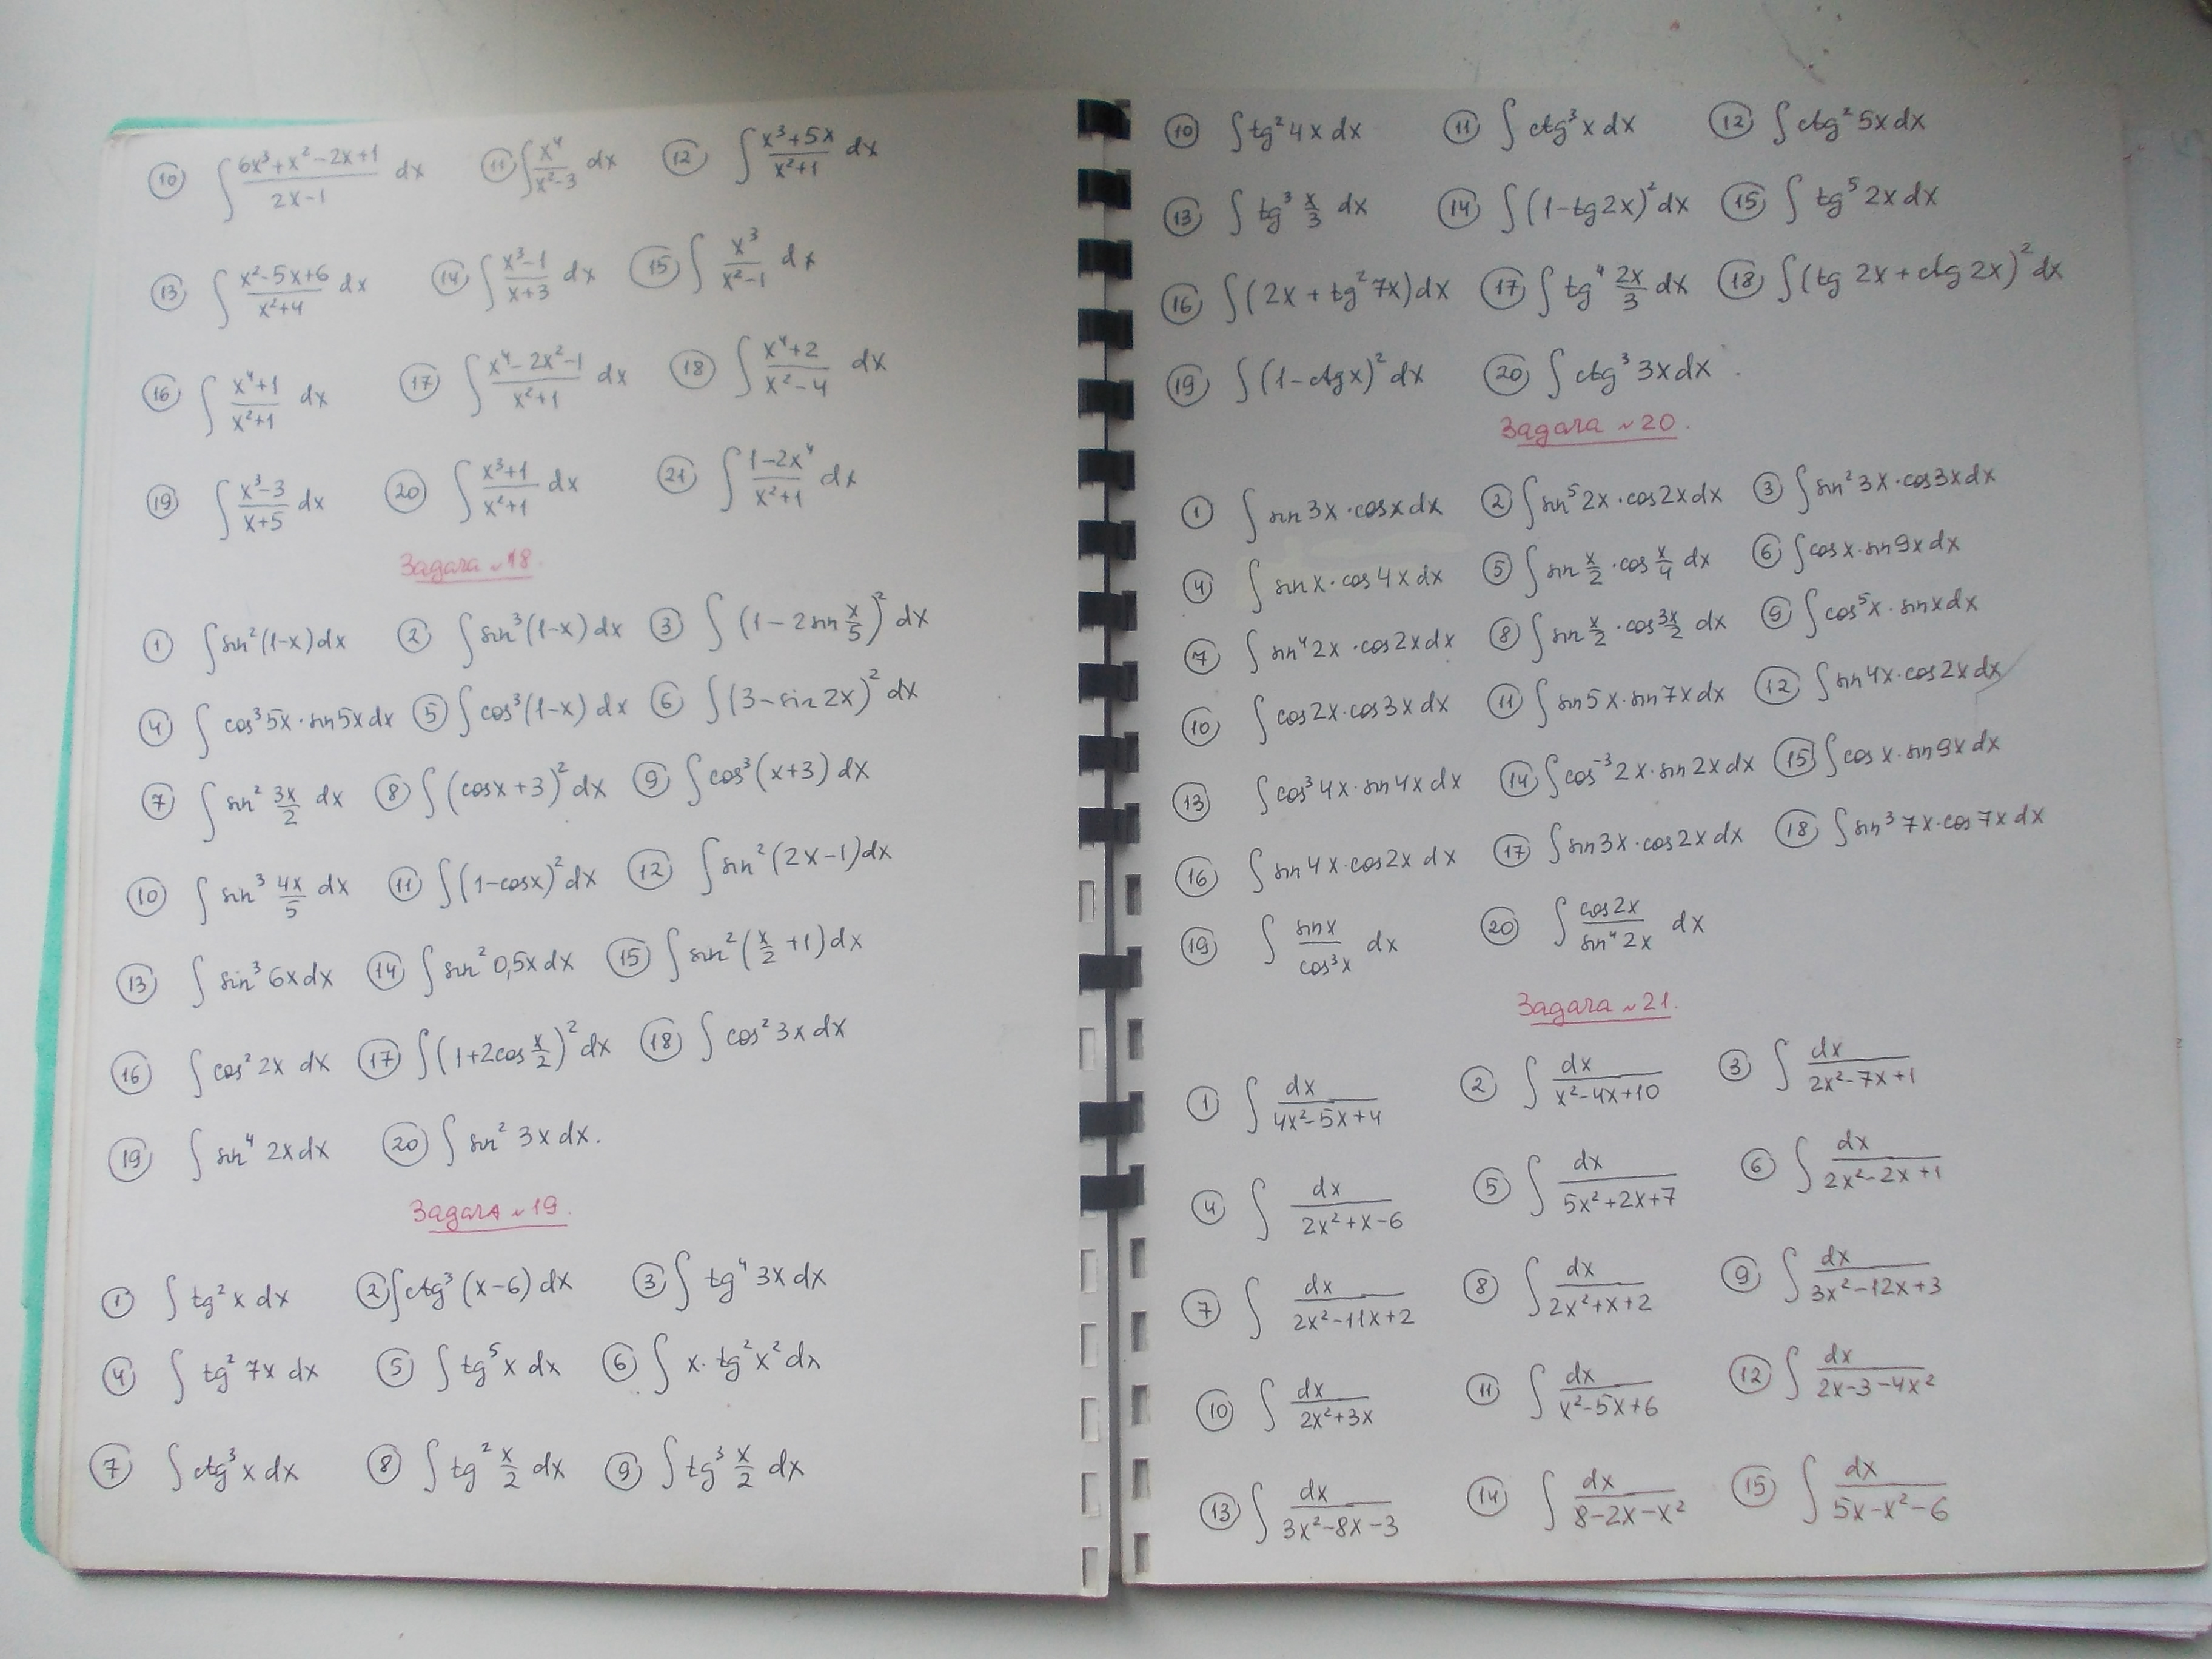 ⑩ ∫ (6x³+x²-2x+1)/(2x-1) dx ⑪ ∫ x⁴/(x²-3) dx ⑫ ∫ (x³+5x)/(x²+1) dx
⑬ ∫ (x²-5x+6)/(x²+4) dx ⑭ ∫ (x³-1)/(x+3) dx ⑮ ∫ x³/(x²-1) dx
⑯ ∫ (x⁴+1)/(x²+1) dx ⑰ ∫ (x⁴-2x²-1)/(x²+1) dx ⑱ ∫ (x⁴+2)/(x²-4) dx
⑲ ∫ (x³-3)/(x+5) dx ⑳ ∫ (x³+1)/(x²+1) dx ㉑ ∫ (1-2x⁴)/(x²+1) dx
Задача №18.
① ∫ sin²(1-x)dx ② ∫ sin³(1-x)dx ③ ∫ (1-2sin x/5)² dx
④ ∫ cos³5x·sin5xdx ⑤ ∫ cos³(1-x)dx ⑥ ∫ (3-sin2x)² dx
⑦ ∫ sin² 3x/2 dx ⑧ ∫ (cosx+3)² dx ⑨ ∫ cos³(x+3)dx
⑩ ∫ sin³ 4x/5 dx ⑪ ∫ (1-cosx)² dx ⑫ ∫ sin²(2x-1)dx
⑬ ∫ sin³6xdx ⑭ ∫ sin²0,5xdx ⑮ ∫ sin²(x/2+1)dx
⑯ ∫ cos²2x dx ⑰ ∫ (1+2cos x/2)² dx ⑱ ∫ cos²3xdx
⑲ ∫ sin⁴2xdx ⑳ ∫ sin²3xdx.
Задача №19.
① ∫ tg²xdx ② ∫ ctg³(x-6)dx ③ ∫ tg⁴3xdx
④ ∫ tg²7xdx ⑤ ∫ tg⁵xdx ⑥ ∫ x·tg²x²dx
⑦ ∫ ctg³xdx ⑧ ∫ tg² x/2 dx ⑨ ∫ tg³ x/2 dx
⑩ ∫ tg²4xdx ⑪ ∫ ctg³xdx ⑫ ∫ ctg²5xdx
⑬ ∫ tg³ x/3 dx ⑭ ∫ (1-tg2x)²dx ⑮ ∫ tg⁵2xdx
⑯ ∫ (2x+tg²7x)dx ⑰ ∫ tg⁴ 2x/3 dx ⑱ ∫ (tg2x+ctg2x)²dx
⑲ ∫ (1-ctgx)²dx ⑳ ∫ ctg³3xdx.
Задача №20.
① ∫ sin3x·cosxdx ② ∫ sin⁵2x·cos2xdx ③ ∫ sin²3x·cos3xdx
④ ∫ sinx·cos4xdx ⑤ ∫ sin x/2·cos x/4 dx ⑥ ∫ cosx·sin9xdx
⑦ ∫ sin⁴2x·cos2xdx ⑧ ∫ sin x/2·cos 3x/2 dx ⑨ ∫ cos⁵x·sinxdx
⑩ ∫ cos2x·cos3xdx ⑪ ∫ sin5x·sin7xdx ⑫ ∫ sin4x·cos2xdx
⑬ ∫ cos³4x·sin4xdx ⑭ ∫ cos⁻³2x·sin2xdx ⑮ ∫ cosx·sin9xdx
⑯ ∫ sin4x·cos2xdx ⑰ ∫ sin3x·cos2xdx ⑱ ∫ sin³7x·cos7xdx
⑲ ∫ sinx/cos³x dx ⑳ ∫ cos2x/sin⁴2x dx
Задача №21.
① ∫ dx/(4x²-5x+4) ② ∫ dx/(x²-4x+10) ③ ∫ dx/(2x²-7x+1)
④ ∫ dx/(2x²+x-6) ⑤ ∫ dx/(5x²+2x+7) ⑥ ∫ dx/(2x²-2x+1)
⑦ ∫ dx/(2x²-11x+2) ⑧ ∫ dx/(2x²+x+2) ⑨ ∫ dx/(3x²-12x+3)
⑩ ∫ dx/(2x²+3x) ⑪ ∫ dx/(x²-5x+6) ⑫ ∫ dx/(2x-3-4x²)
⑬ ∫ dx/(3x²-8x-3) ⑭ ∫ dx/(8-2x-x²) ⑮ ∫ dx/(5x-x²-6)